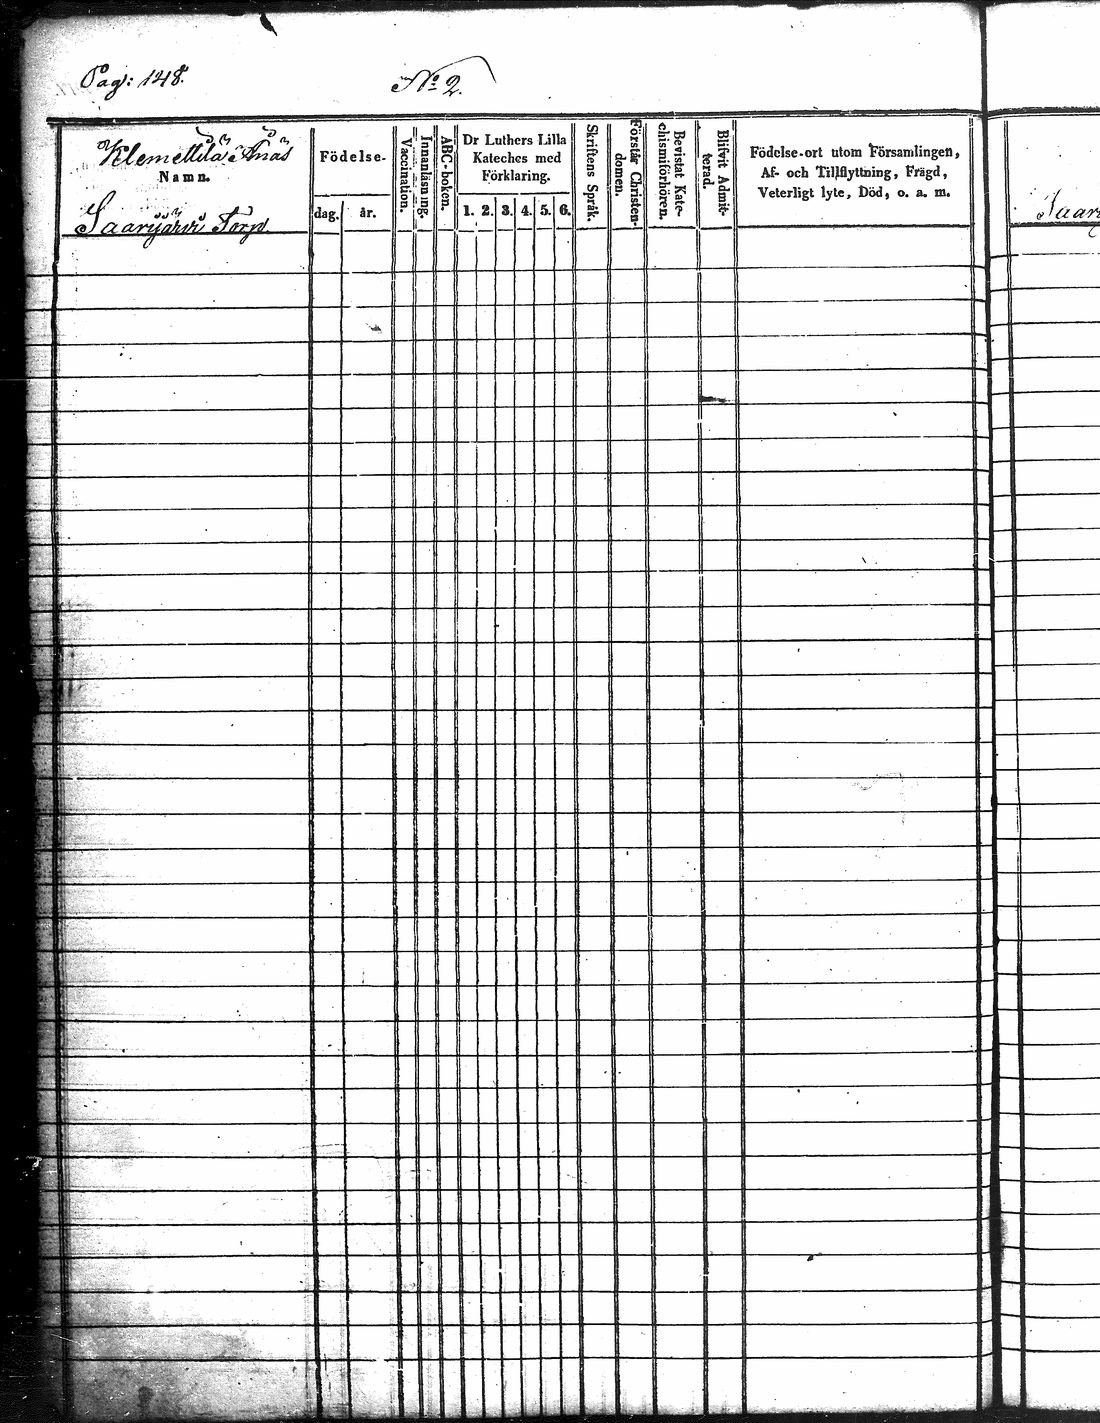 Pag: 148.
No 2.
Klemettilä
Namn.
Saarijärvi Torp.
Födelse-
dag. år.
Vaccination.
Innanläsning.
ABC-boken.
Dr Luthers Lilla
Kateches med
Förklaring.
1. 2. 3. 4. 5. 6.
Skriftens Språk.
Förstår Christen-
domen.
Bevistat Kate-
chismiförhören.
Blifvit Admit-
terad.
Födelse-ort utom Församlingen,
Af- och Tillflyttning, Frägd,
Veterligt lyte, Död, o. a. m.
Saari